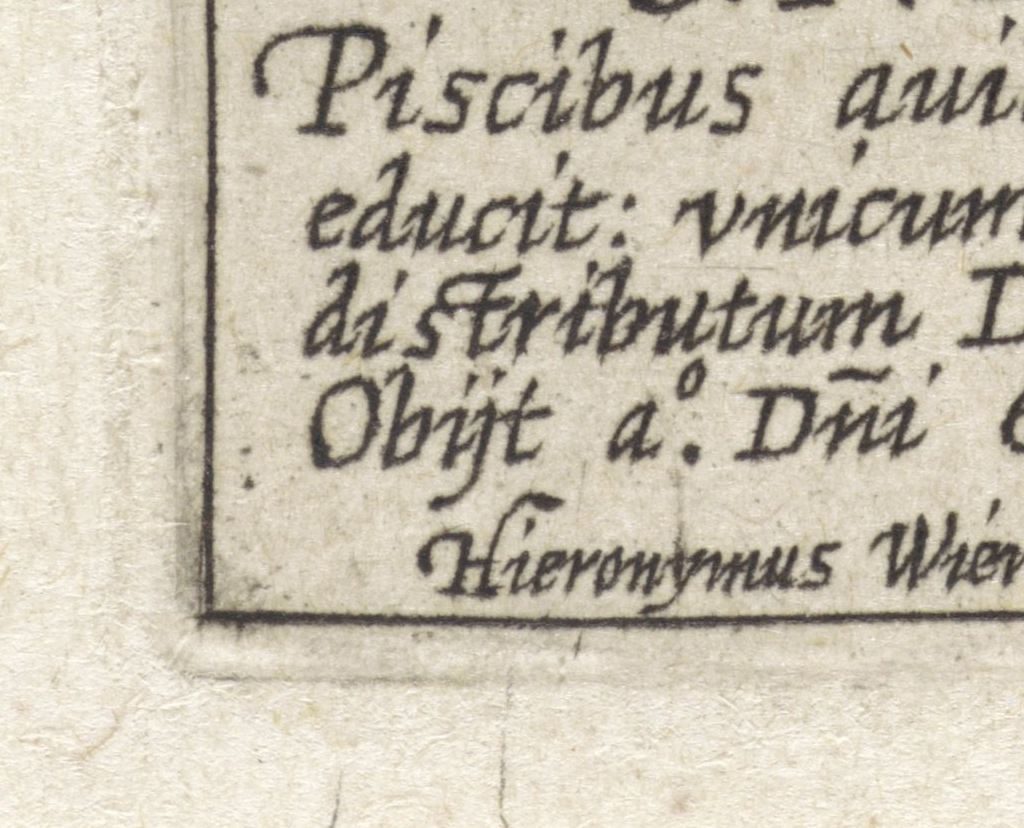 Piscibus qui
educit: vnicum
distributum
Obijt aº. Dñi
Hieronymus Wier